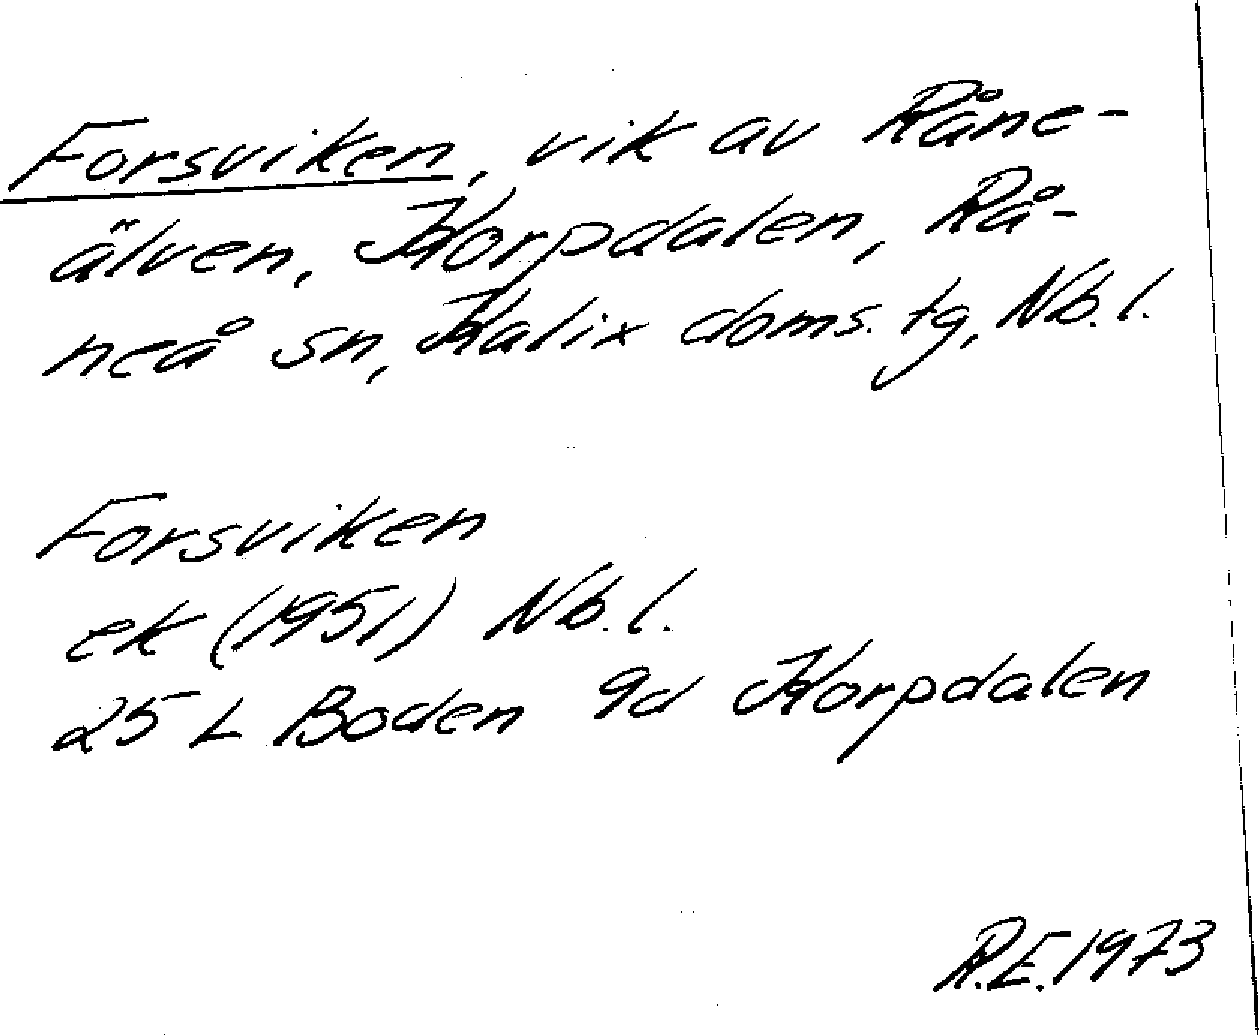 Forsviken, vik av Råne-
älven, Korpdalen, Rå-
neå sn, Kalix doms. tg, Nb.l.
Forsviken
ek (1951) Nb.l.
25 L Boden 9d Korpdalen
R.E.1973